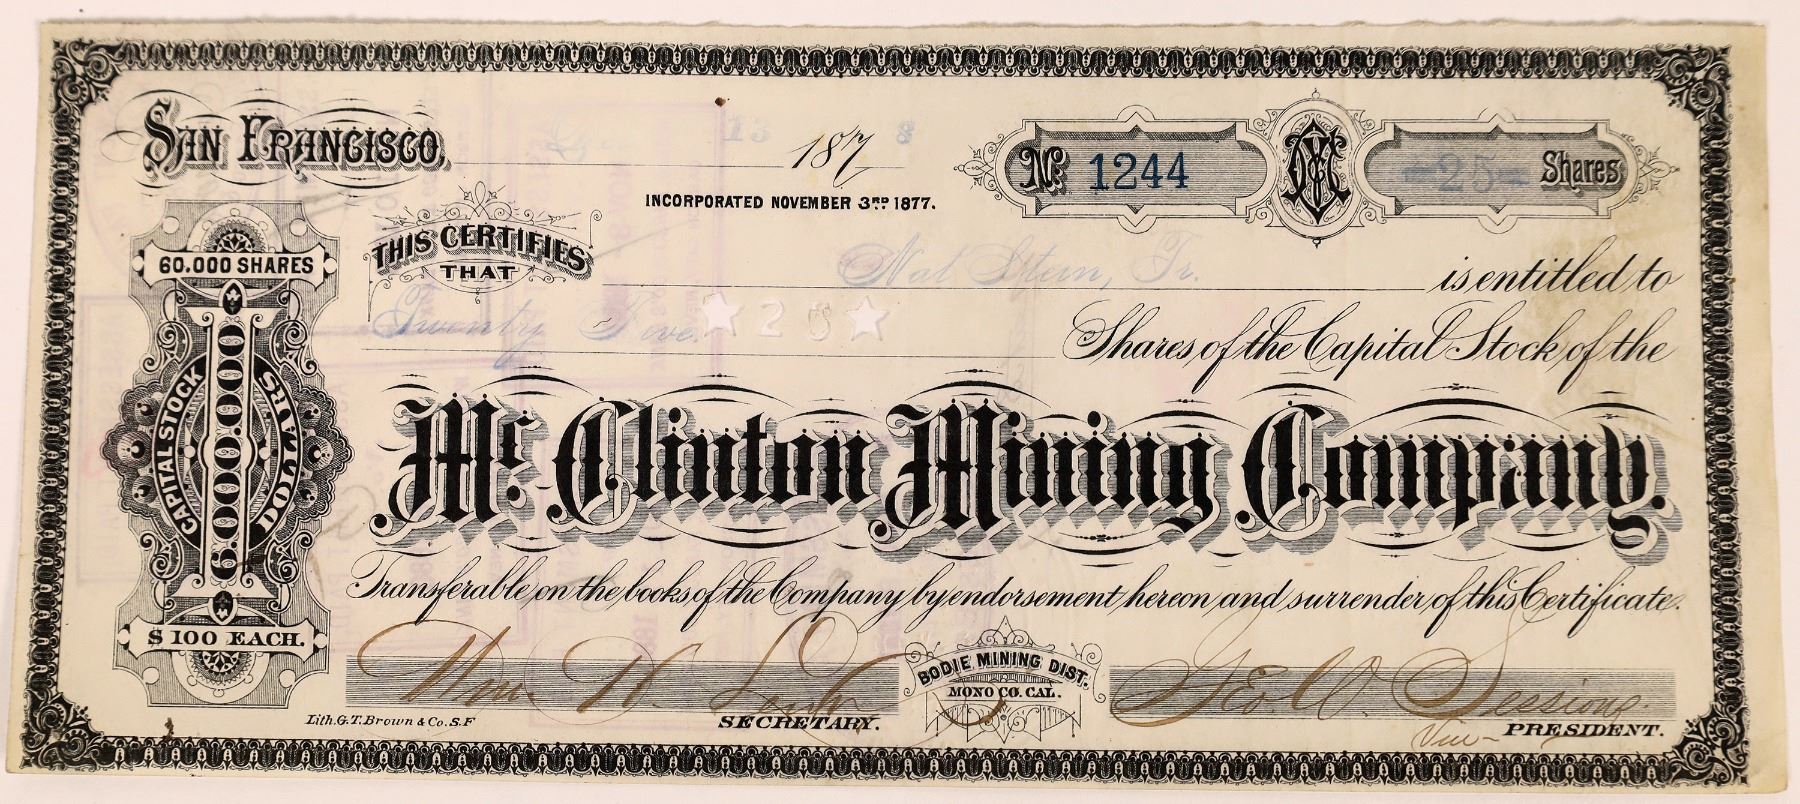 SAN FRANCISCO, 13 1878
INCORPORATED NOVEMBER 3RD 1877.
No. 1244
25 Shares
60.000 SHARES
CAPITAL STOCK
6000000
DOLLARS
$100 EACH.
THIS CERTIFIES THAT Nat Stein, Jr. is entitled to
Twenty Five ★25★ Shares of the Capital Stock of the
Mc. Clinton Mining Company.
Transferable on the books of the Company by endorsement hereon and surrender of this Certificate.
Wm. H.
SECRETARY.
BODIE MINING DIST.
MONO CO. CAL.
Geo W. Sessions
Vice- PRESIDENT.
Lith. G.T. Brown & Co. S.F